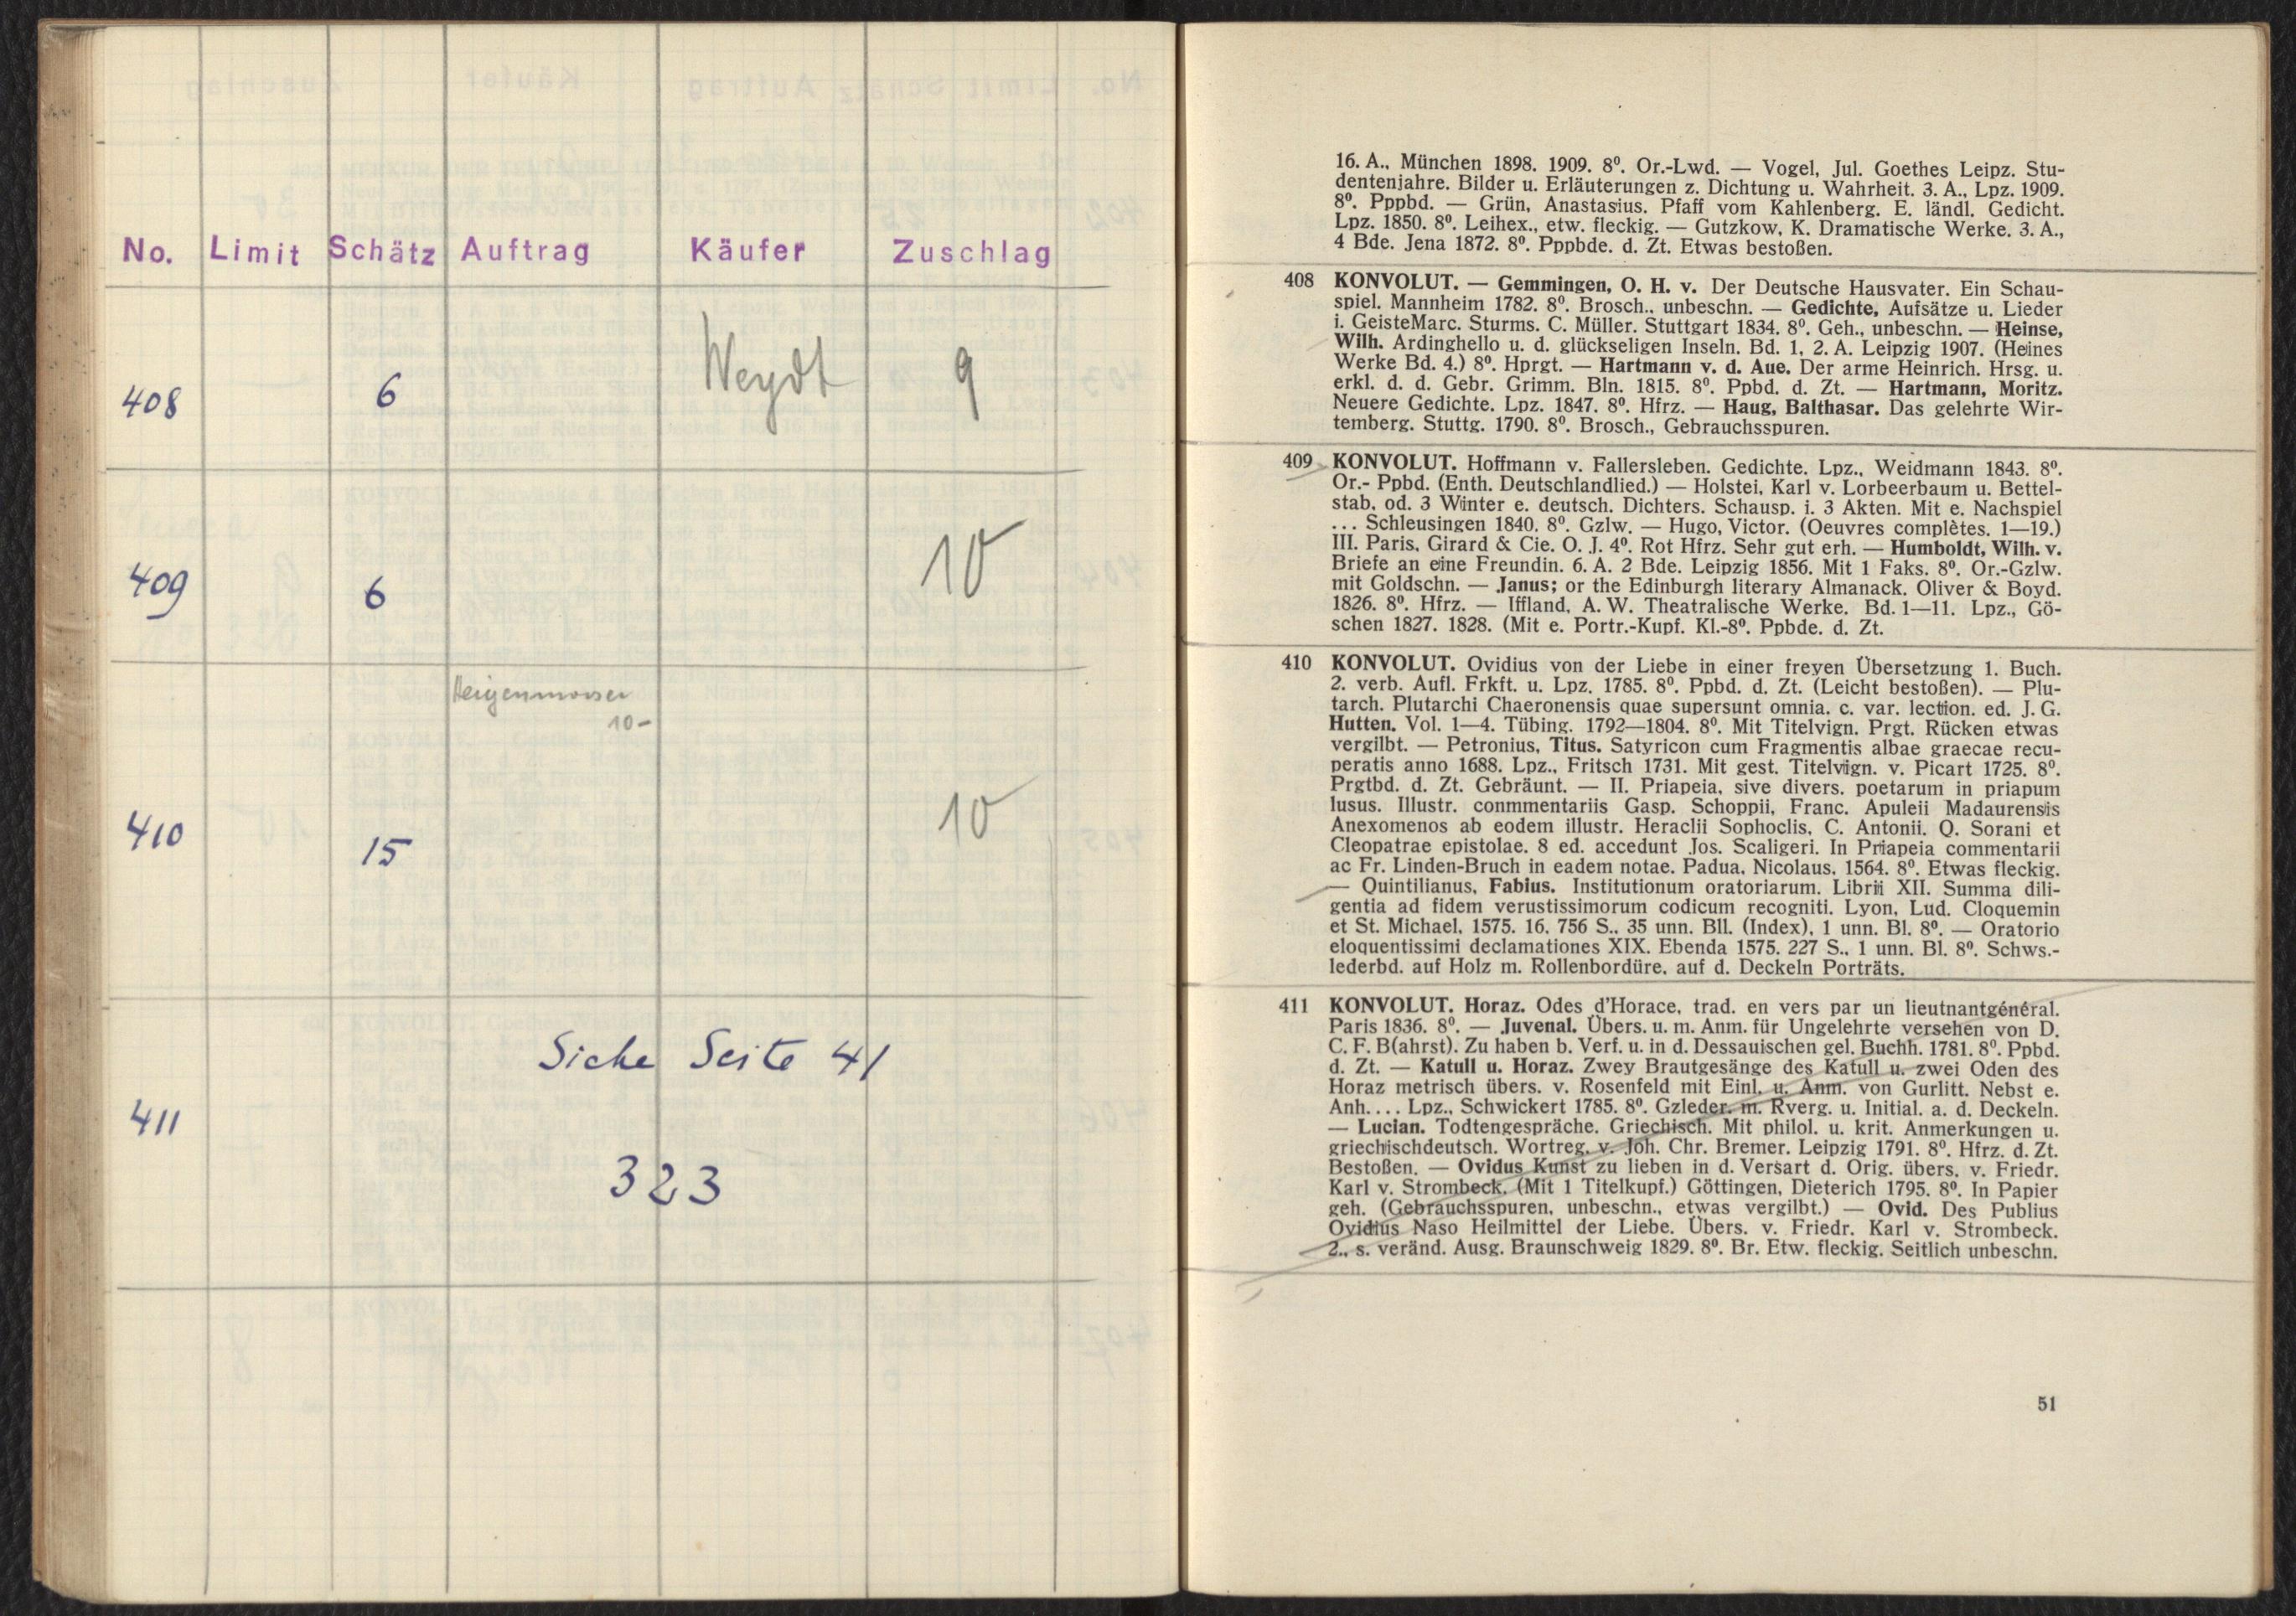 No. Limit Schätz Auftrag Käufer Zuschlag
408 6 Weydt 9
409 6 10
Heigenmooser
10-
410 15 10
Siehe Seite 41
411
323
16. A., München 1898. 1909. 8⁰. Or.-Lwd. — Vogel, Jul. Goethes Leipz. Stu-
dentenjahre. Bilder u. Erläuterungen z. Dichtung u. Wahrheit. 3. A., Lpz. 1909.
8⁰. Pppbd. — Grün, Anastasius. Pfaff vom Kahlenberg. E. ländl. Gedicht.
Lpz. 1850. 8⁰. Leihex., etw. fleckig. — Gutzkow, K. Dramatische Werke. 3. A.,
4 Bde. Jena 1872. 8⁰. Pppbde. d. Zt. Etwas bestoßen.
408 KONVOLUT. — Gemmingen, O. H. v. Der Deutsche Hausvater. Ein Schau-
spiel. Mannheim 1782. 8⁰. Brosch., unbeschn. — Gedichte, Aufsätze u. Lieder
i. GeisteMarc. Sturms. C. Müller. Stuttgart 1834. 8⁰. Geh., unbeschn. — Heinse,
Wilh. Ardinghello u. d. glückseligen Inseln. Bd. 1, 2. A. Leipzig 1907. (Heines
Werke Bd. 4.) 8⁰. Hprgt. — Hartmann v. d. Aue. Der arme Heinrich. Hrsg. u.
erkl. d. d. Gebr. Grimm. Bln. 1815. 8⁰. Ppbd. d. Zt. — Hartmann, Moritz.
Neuere Gedichte. Lpz. 1847. 8⁰. Hfrz. — Haug, Balthasar. Das gelehrte Wir-
temberg. Stuttg. 1790. 8⁰. Brosch., Gebrauchsspuren.
409 KONVOLUT. Hoffmann v. Fallersleben. Gedichte. Lpz., Weidmann 1843. 8⁰.
Or.- Ppbd. (Enth. Deutschlandlied.) — Holstei, Karl v. Lorbeerbaum u. Bettel-
stab, od. 3 Winter e. deutsch. Dichters. Schausp. i. 3 Akten. Mit e. Nachspiel
... Schleusingen 1840. 8⁰. Gzlw. — Hugo, Victor. (Oeuvres complètes. 1—19.)
III. Paris, Girard & Cie. O. J. 4⁰. Rot Hfrz. Sehr gut erh. — Humboldt, Wilh. v.
Briefe an eine Freundin. 6. A. 2 Bde. Leipzig 1856. Mit 1 Faks. 8⁰. Or.-Gzlw.
mit Goldschn. — Janus; or the Edinburgh literary Almanack. Oliver & Boyd.
1826. 8⁰. Hfrz. — Iffland, A. W. Theatralische Werke. Bd. 1—11. Lpz., Gö-
schen 1827. 1828. (Mit e. Portr.-Kupf. Kl.-8⁰. Ppbde. d. Zt.
410 KONVOLUT. Ovidius von der Liebe in einer freyen Übersetzung 1. Buch.
2. verb. Aufl. Frkft. u. Lpz. 1785. 8⁰. Ppbd. d. Zt. (Leicht bestoßen). — Plu-
tarch. Plutarchi Chaeronensis quae supersunt omnia. c. var. lection. ed. J. G.
Hutten. Vol. 1—4. Tübing. 1792—1804. 8⁰. Mit Titelvign. Prgt. Rücken etwas
vergilbt. — Petronius, Titus. Satyricon cum Fragmentis albae graecae recu-
peratis anno 1688. Lpz., Fritsch 1731. Mit gest. Titelvign. v. Picart 1725. 8⁰.
Prgtbd. d. Zt. Gebräunt. — II. Priapeia, sive divers. poetarum in priapum
lusus. Illustr. conmmentariis Gasp. Schoppii, Franc. Apuleii Madaurensis
Anexomenos ab eodem illustr. Heraclii Sophoclis, C. Antonii. Q. Sorani et
Cleopatrae epistolae. 8 ed. accedunt Jos. Scaligeri. In Priapeia commentarii
ac Fr. Linden-Bruch in eadem notae. Padua, Nicolaus, 1564. 8⁰. Etwas fleckig.
— Quintilianus, Fabius. Institutionum oratoriarum. Librii XII. Summa dili-
gentia ad fidem verustissimorum codicum recogniti. Lyon, Lud. Cloquemin
et St. Michael, 1575. 16. 756 S., 35 unn. Bll. (Index), 1 unn. Bl. 8⁰. — Oratorio
eloquentissimi declamationes XIX. Ebenda 1575. 227 S., 1 unn. Bl. 8⁰. Schws.-
lederbd. auf Holz m. Rollenbordüre, auf d. Deckeln Porträts.
411 KONVOLUT. Horaz. Odes d'Horace, trad. en vers par un lieutnantgénéral.
Paris 1836. 8⁰. — Juvenal. Übers. u. m. Anm. für Ungelehrte versehen von D.
C. F. B(ahrst). Zu haben b. Verf. u. in d. Dessauischen gel. Buchh. 1781. 8⁰. Ppbd.
d. Zt. — Katull u. Horaz. Zwey Brautgesänge des Katull u. zwei Oden des
Horaz metrisch übers. v. Rosenfeld mit Einl. u. Anm. von Gurlitt. Nebst e.
Anh.... Lpz., Schwickert 1785. 8⁰. Gzleder. m. Rverg. u. Initial. a. d. Deckeln.
— Lucian. Todtengespräche. Griechisch. Mit philol. u. krit. Anmerkungen u.
griechischdeutsch. Wortreg. v. Joh. Chr. Bremer. Leipzig 1791. 8⁰. Hfrz. d. Zt.
Bestoßen. — Ovidus Kunst zu lieben in d. Versart d. Orig. übers. v. Friedr.
Karl v. Strombeck. (Mit 1 Titelkupf.) Göttingen, Dieterich 1795. 8⁰. In Papier
geh. (Gebrauchsspuren, unbeschn., etwas vergilbt.) — Ovid. Des Publius
Ovidius Naso Heilmittel der Liebe. Übers. v. Friedr. Karl v. Strombeck.
2., s. veränd. Ausg. Braunschweig 1829. 8⁰. Br. Etw. fleckig. Seitlich unbeschn.
51